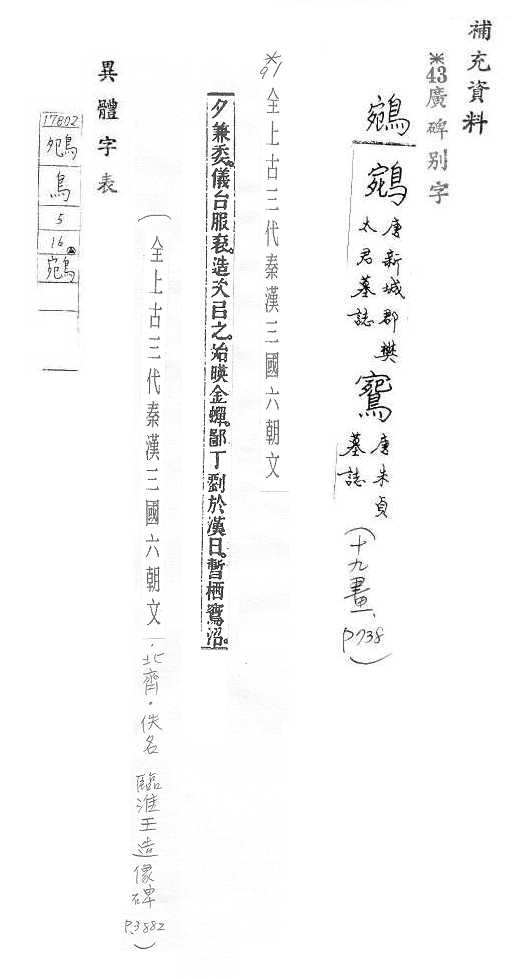 補充資料
※43廣碑別字
鵷
鵷 唐新城郡樊太君墓誌 鵷 唐朱貞墓誌 (十九畫、P738)
※91
全上古三代秦漢三國六朝文
夕兼委。儀台服袞。造次呂之。始暎金蟬。鄙丁劉於漢日。暫栖鵷沼。
(全上古三代秦漢三國六朝文.北齊.佚名 臨淮王造像碑 P.3882)
異體字表
17802
鵷
鳥
5
16
鵷